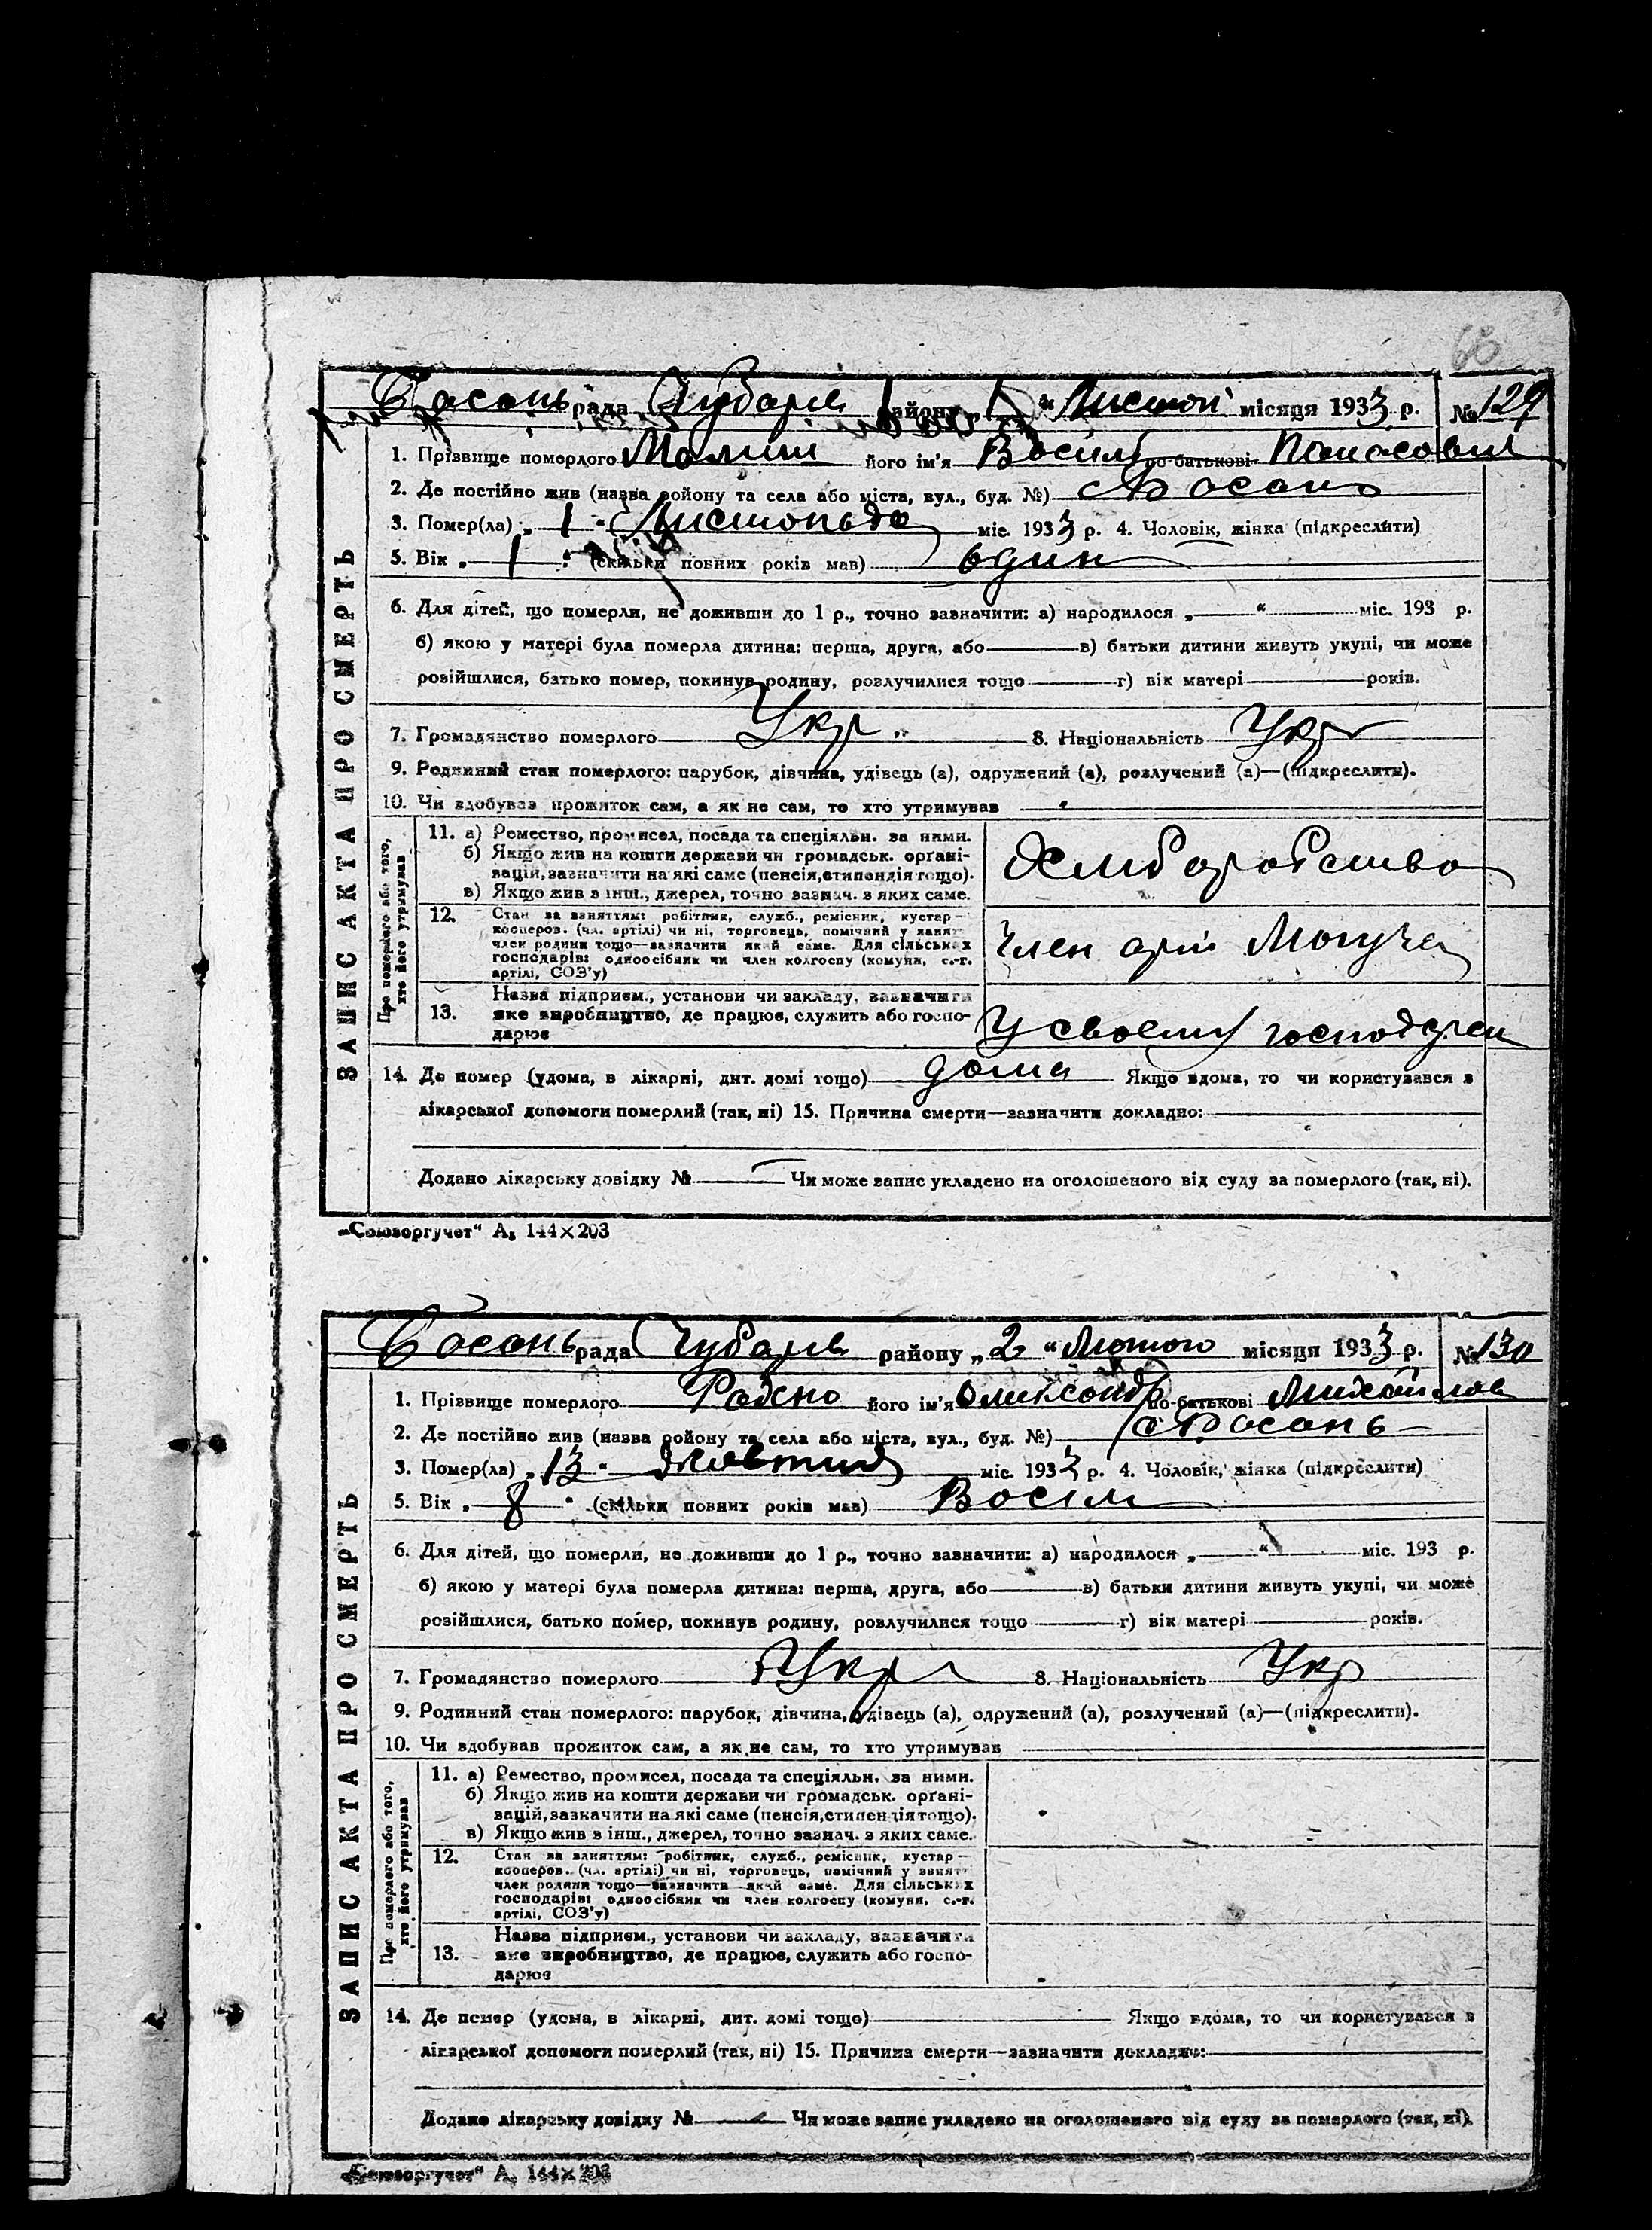 68
Басань рада Чубарів району „1“ Листоп місяця 1933 р. № 129
1. Прізвище померлого його ім'я Васіль по-батькові Панасович
2. Де постійно жив (назва району та села або міста, вул., буд. №) с Басань
3. Помер(ла) „1“ Листопада міс. 1933 р. 4. Чоловік, жінка (підкреслити)
5. Вік „1“ (скільки повних років мав) один
6. Для дітей, що померли, не доживши до 1 р., точно зазначити: а) народилося „ “ міс. 193 р.
б) якою у матері була померла дитина: перша, друга, або в) батьки дитини живуть укупі, чи може
розійшлися, батько помер, покинув родину, розлучилися тощо г) вік матері років.
7. Громадянство померлого Укр. 8. Національність Укр
9. Родинний стан померлого: парубок, дівчина, удівець (а), одружений (а), розлучений (а)—(підкреслити).
10. Чи здобував прожиток сам, а як не сам, то хто утримував
ЗАПИС АКТА ПРО СМЕРТЬ
Про померлого або того,
хто його утримував
11. а) Ремество, промисел, посада та спеціяльн. за ними.
б) Якщо жив на кошти держави чи громадськ. орґані-
зацій, зазначити на які саме (пенсія, стипендія тощо).
в) Якщо жив з інш., джерел, точно зазнач. з яких саме.
Хліборобство
12. Стан за заняттям: робітник, служб., ремісник, кустар—
кооперов. (чл. артілі) чи ні, торговець, помічний у занят.
член родини тощо—зазначити який саме. Для сільських
господарів: одноосібник чи член колгоспу (комуни, с.-г.
артілі, СОЗ'у)
Член арті Могуча
13. Назва підприєм., установи чи закладу, зазначити
яке виробництво, де працює, служить або госпо-
дарює
У своему господарстві
14. Де помер (удома, в лікарні, дит. домі тощо) дома Якщо вдома, то чи користувався з
лікарської допомоги померлий (так, ні) 15. Причина смерти—зазначити докладно:
Додано лікарську довідку № Чи може запис укладено на оголошеного від суду за померлого (так, ні).
„Союзоргучет“ А5 144×203
Басань рада Чубарів району „2“ Лютого місяця 1933 р. № 130
1. Прізвище померлого Рахно його ім'я Олександр по-батькові Михайлов
2. Де постійно жив (назва району та села або міста, вул., буд. №) с Басань
3. Помер(ла) „13“ Жовтня міс. 1933 р. 4. Чоловік, жінка (підкреслити)
5. Вік „8“ (скільки повних років мав) Восім
6. Для дітей, що померли, не доживши до 1 р., точно зазначити: а) народилося „ “ міс. 193 р.
б) якою у матері була померла дитина: перша, друга, або в) батьки дитини живуть укупі, чи може
розійшлися, батько помер, покинув родину, розлучилися тощо г) вік матері років.
7. Громадянство померлого Укр 8. Національність Укр
9. Родинний стан померлого: парубок, дівчина, удівець (а), одружений (а), розлучений (а)—(підкреслити).
10. Чи здобував прожиток сам, а як не сам, то хто утримував
ЗАПИС АКТА ПРО СМЕРТЬ
Про померлого або того,
хто його утримував
11. а) Ремество, промисел, посада та спеціяльн. за ними.
б) Якщо жив на кошти держави чи громадськ. орґані-
зацій, зазначити на які саме (пенсія, стипендія тощо).
в) Якщо жив з інш., джерел, точно зазнач. з яких саме.
12. Стан за заняттям: робітник, служб., ремісник, кустар—
кооперов. (чл. артілі) чи ні, торговець, помічний у занят.
член родини тощо—зазначити який саме. Для сільських
господарів: одноосібник чи член колгоспу (комуни, с.-г.
артілі, СОЗ'у)
13. Назва підприєм., установи чи закладу, зазначити
яке виробництво, де працює, служить або госпо-
дарює
14. Де помер (удома, в лікарні, дит. домі тощо) Якщо вдома, то чи користувався з
лікарської допомоги померлий (так, ні) 15. Причина смерти—зазначити докладно:
Додано лікарську довідку № Чи може запис укладено на оголошеного від суду за померлого (так, ні).
„Союзоргучет“ А5 144×203